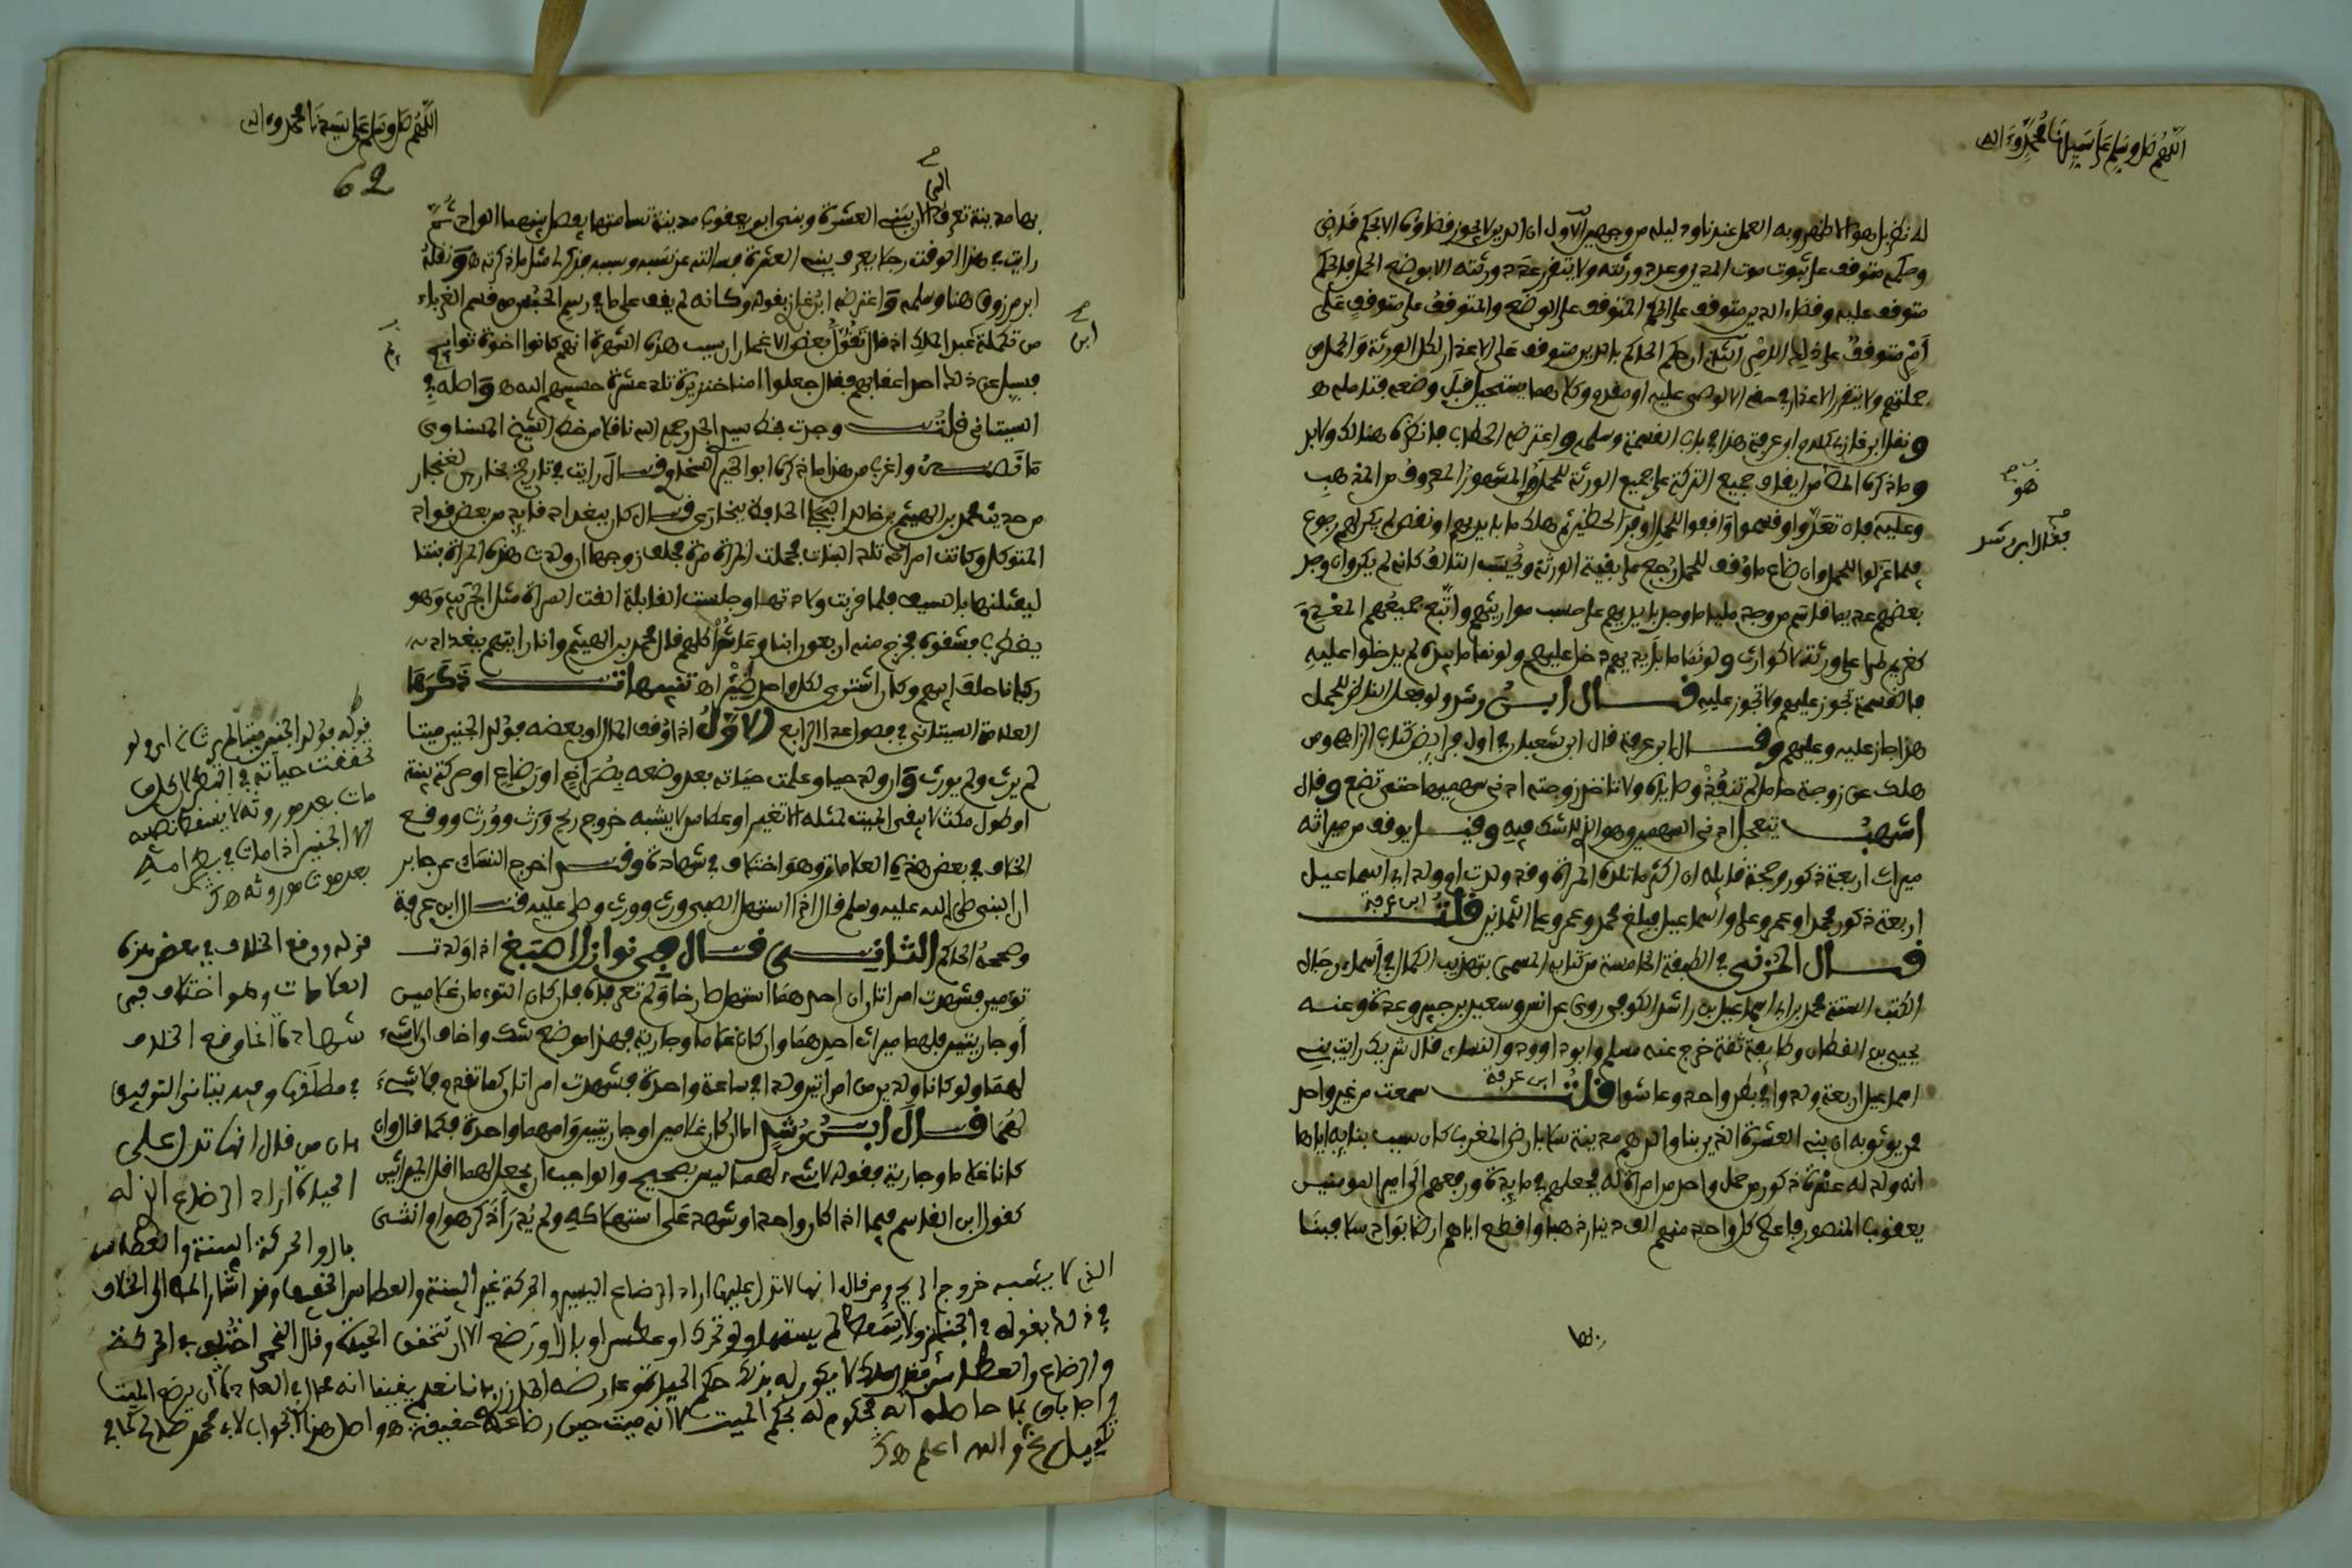 اللهم صل وسلم على سيدنا محمد وءاله
له نظر بل هو الاظهر وبه العمل عندنا ودليله من وجهين الاول ان الدين لا يجوز قضاؤه الا بحكم قاض
وحكمه متوقف على ثبوت موت المدين وعدد ورثته ولا يتقرر عدد ورثته الا بوضع الحمل فالحكم
متوقف عليه وقضاء الدين متوقف على الحكم المتوقف على الوضع والمتوقف على متوقف على
أمر متوقف على ذلك الامر الثاني ان حكم الحاكم بالدين متوقف على الاعذار لكل الورثة والحمل من
جملتهم ولا يتقرر الاعذار في حقه الا لوصي عليه او مقدم وكلاهما يستحيل قبل وضعه فتامله هـ
ونقل ابن غازي كلام ابن عرفة هذا في باب القسمة وسلمه واعترضه الحطاب فانظره هنالك ولا بد
وما ذكره المص من ايقاف جميع التركة على جميع الورثة للحمل هو المشهور المعروف من المذهب
هو
وعليه فان تعدوا وقسموا واوقفوا للحمل اوفر الحظين ثم هلك ما بايديهم او نقص لم يكن لهم رجوع
فقال ابن رشد
فيما عزلوا للحمل وان ضاع ما وقف للحمل رجع على بقية الورثة وحسب التالف كانه لم يكن وان وجد
بعضهم عديما قاسم من وجد مليا ما وجد بايديهم على حسب مواريثهم واتبع جميعهم المعدم
كغريم طرا على ورثة لا كوارث ولو نما ما بايديهم دخل عليهم ولو نما ما بيده لم يدخلوا عليه
فالقسمة تجوز عليهم ولا تجوز عليه قال ابن رشد ولو فعل الناظر للحمل
هذا جاز عليه وعليهم وقال ابن عرفة قال ابن شعبان في اول فرايض كتاب الزاهي ومن
هلك عن زوجة حامل لم تنفذ وصاياه ولا تاخذ زوجته ادنى سهميها حتى تضع وقال
اشهب تتعجل ادنى السهمين وهو الذي لا شك فيه وقيل يوقف من ميراثه
ميراث اربعة ذكور وحجة قايله ان اكثر ما تلده المراة وقد ولدت ام ولد ابي اسماعيل
اربعة ذكور محمدا وعمر وعليا واسماعيل فبلغ محمد وعمر وعلي الثمانين قلت
ابن عرفة
قال المزني في الطبقة الخامسة من كتابه المسمى بتهذيب الكمال في اسماء رجال
الكتب الستة محمد بن ابي اسماعيل بن راشد الكوفي روى عن انس وسعيد بن جبير وعدة وعنه
يحيى بن القطان وطايفة ثقة خرج عنه مسلم وابو داوود والنساي قال شريك رايت بني
ابي اسماعيل اربعة ولدوا في بطن واحد وعاشوا قلت سمعت من غير واحد
ابن عرفة
ممن يوثق به ان بني العشرة الذين بنا والدهم مدينة سلا بارض المغرب كان سبب بنايه اياها
انه ولد له عشرة ذكور من حمل واحد من امراة له فجعلهم في مايدة ورفعهم الى امير المومنين
يعقوب المنصور فاعطى كل واحد منهم الف دينار ذهبا واقطع اباهم ارضا بواد سلا فبنا
بها
اللهم صل وسلم على سيدنا محمد وءاله
62
بها مدينة تعرف الان ببني العشرة وبنى ابو يعقوب مدينة تسامتها يفصل بينهما الواد ثم
الى
رايت في هذا الوقت رجلا يعرف ببني العشرة فسالته عن نسبه وسببه فذكر لي مثل ما ذكرته هـ ونقله
ابن مرزوق هنا وسلمه واعترضه ابن غازي بقوله وكانه لم يقف على ما في رسم الحبس من قسم الغرباء
ابن
من تكملة عبد الملك اذ قال تقول بعض الاغمار ان سبب هذه الشهرة انهم كانوا اخوة توايم
فسيل عن ذلك احد اعقابهم فقال جعلوا امنا خنزيرة تلد عشرة حسيبهم الله هـ واصله في
البستاني قلت وجدت بخط سيدي الجد رحمه الله ناقلا من خط الشيخ المسناوي
ما نصه واغرب من هذا ما ذكره ابو الخير السخاوي قال رايت في تاريخ بخارى لغنجار
من حديث محمد بن الهيثم بن خالد البجلي الحافظ ببخارى قال كان ببغداد قايد من بعض قواد
المتوكل وكانت امراته تلد البنات فحملت المراة مرة فحلف زوجها ان ولدت هذه المراة بنتا
ليقتلنها بالسيف فلما قربت ولادتها وجلست القابلة القت المراة مثل الجريب وهو
يضطرب فشقوه فخرج منه اربعون ابنا وعاشوا كلهم قال محمد بن الهيثم وانا رايتهم ببغداد
ركبانا خلف ابيهم وكان اشترى لكل واحد ظئرا هـ تنبيهات ذكرها
العلامة البستاني في فصول عد الرابع الاول اذا اوقف المال او بعضه فولد الجنين ميتا
لم يرث ولم يورث وان ولد حيا وعلمت حياته بعد وضعه بصراخ او رضاع او حركة بينة
او طول مكث لا يبقى الميت لمثله الا تغير او عطاس لا يشبه خروج ريح ورث وورث ووقع
الخلاف في بعض هذه العلامات وهو اختلاف في شهادة وقد اخرج النساي عن جابر
ان النبي صلى الله عليه وسلم قال اذا استهل الصبي ورث وورث وصلي عليه قال ابن عرفة
وصححه الحاكم الثاني قال في نوازل اصبغ اذا ولدت
تومين فشهدت امراتان ان احدهما استهل صارخا ولم تعرفاه فان كان التوءمان غلامين
أو جاريتين فلهما ميراث احدهما وان كان غلاما وجارية فهذا موضع شك واخاف ان لا شيء
لهما ولو كانا ولدين من امراتين ولدا في ساعة واحدة فشهدت امراتان كما تقدم فلا شيء
لهما قال ابن رشد اما ان كانا غلامين او جاريتين وامهما واحدة فكما قال وان
كانا غلاما وجارية فقوله لا شيء لهما ليس بصحيح والواجب ان يجعل لهما اقل الميراثين
كقول ابن القاسم فيما اذا كان واحدا وشهد على استهلاله ولم يدر أذكر هو او انثى
قوله فولد الجنين ميتا لم يرث اي ولو
تحققت حياته في البطن لا يخلف
مات بعد موروثه لا ينتقل نصيبه
الى الجنين اذا مات في بطن امه
بعد موت موروثه هـ
قوله ووقع الخلاف في بعض هذه
العلامات وهو اختلاف في
شهادة انما وقع الخلاف
في مطلقها وفيد بناني التوفيق
بان من قال انها تدل على
الحياة اراد الرضاع الذي له
بال والحركة البينة والعطاس
الذي لا يشبه خروج الريح ومن قال انها لا تدل عليها اراد الرضاع اليسير والحركة غير البينة والعطاس الخفيف وقد اشار المص الى الخلاف
في ذلك بقوله في الجنايز ولا سقط لم يستهل ولو تحرك او عطس او بال او رضع الا ان تتحقق الحياة وقال اللخمي اختلف في الحركة
والرضاع والعطاس فقال مالك لا يكون له بذلك حكم الحياة وعارضه المازري بانا نعلم يقينا انه محال في العادة ان يرضع الميت
واجاب بما حاصله انه محكوم له بحكم الميت لا انه ميت حين رضاعه حقيقة هـ واصل هذا الجواب لابي محمد صالح كما في
تكميل غ والله اعلم هـ